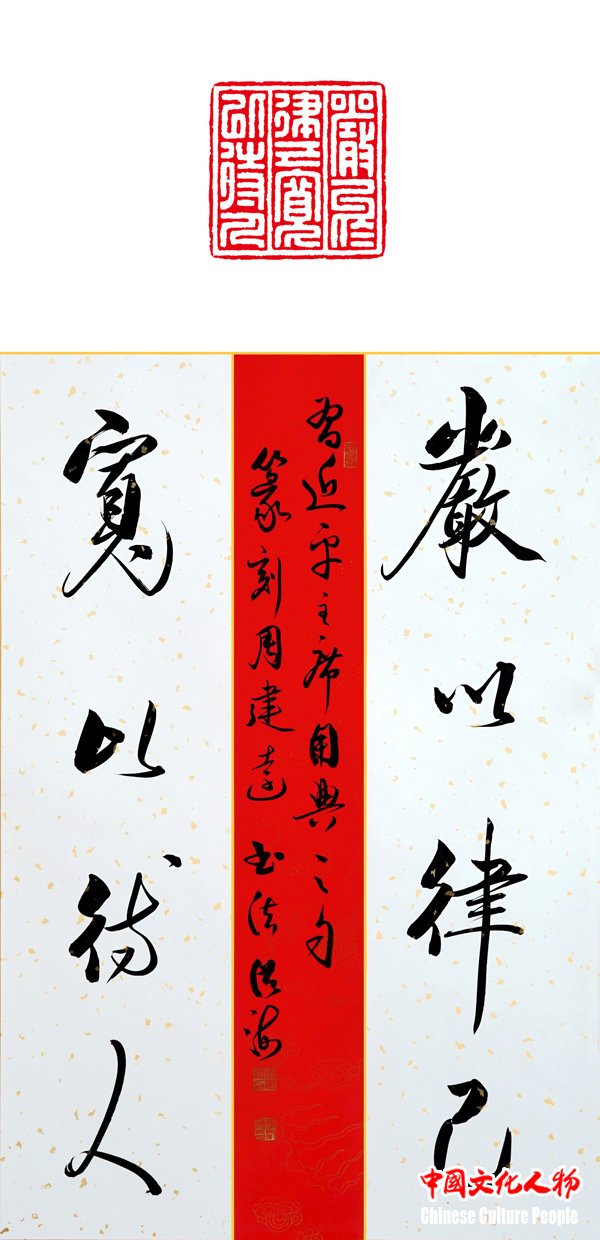 嚴以
律己寬
以待人
嚴以律己
習近平主席用典之句
篆刻周建 书法洪海
寬以待人
中國文化人物
Chinese Culture People